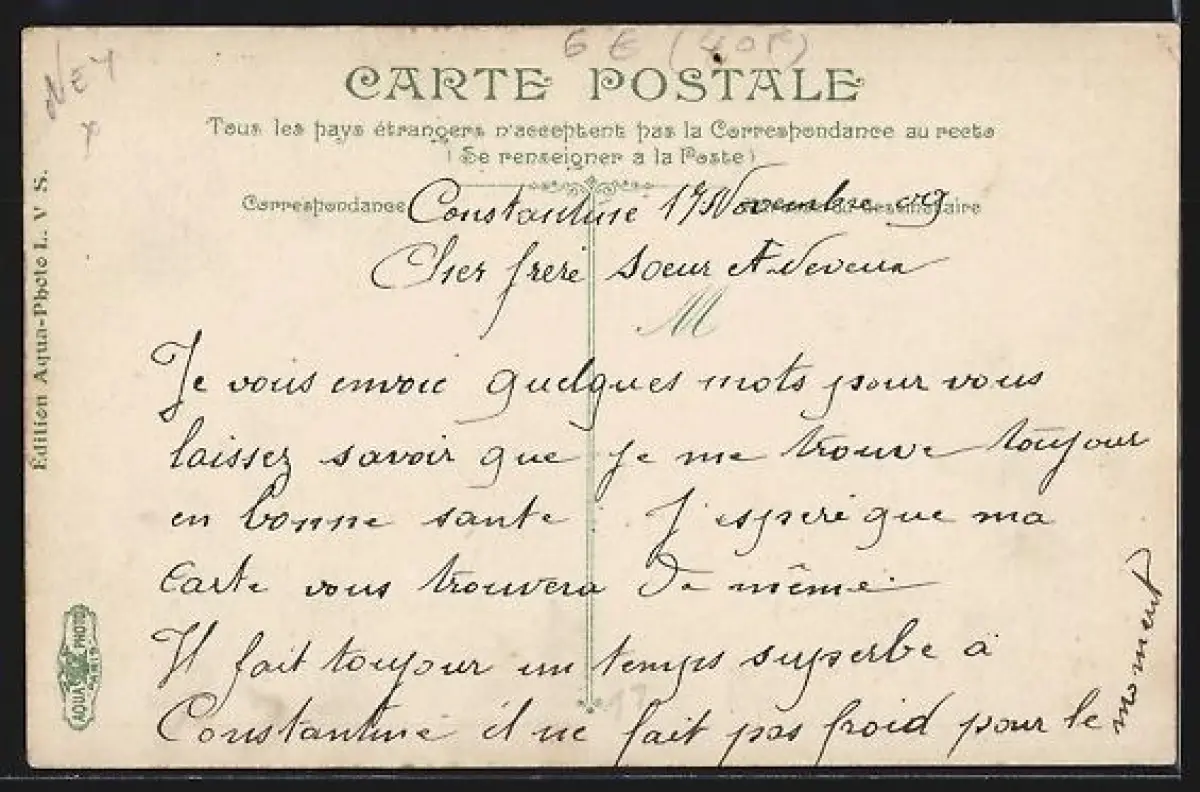 6 € (40F)
NEY
CARTE POSTALE
Tous les pays étrangers n'acceptent pas la Correspondance au recto
(Se renseigner a la Poste)
Correspondance
Constantine 17 Novembre 09
Cher frere Soeur et Neveux
M
Je vous envoie quelques mots pour vous
laissez savoir que je me trouve toujour
en bonne sante J'espere que ma
Carte vous trouvera De même
Il fait toujour un temps superbe a
Constantine il ne fait pas froid pour le
moment
17
Edition Aqua-Photo L. V S.
AQUA PHOTO
PARIS